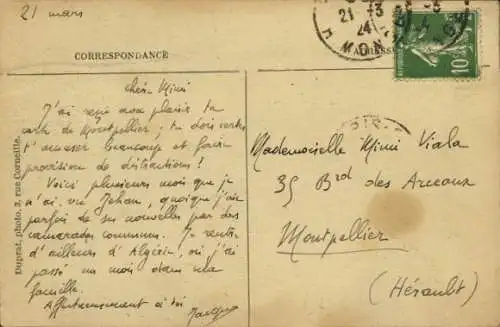 21 mars
CORRESPONDANCE
chère Mimi
J'ai reçu avec plaisir ta
carte de Montpellier ; tu dois certes
t'amuser beaucoup et faire
provision de distractions !
Voici plusieurs mois que je
n'ai vu Jehan, quoique j'aie
parfois de ses nouvelles par des
camarades communs. Je rentre
d'ailleurs d'Algérie, où j'ai
passé un mois dans ma
famille.
Affectueusement à toi
Duprat, photo, 3, rue Corneille.
21 -3
24
10
Mademoiselle Mimi Viala
35 Brd des Arceaux
Montpellier
(Hérault)